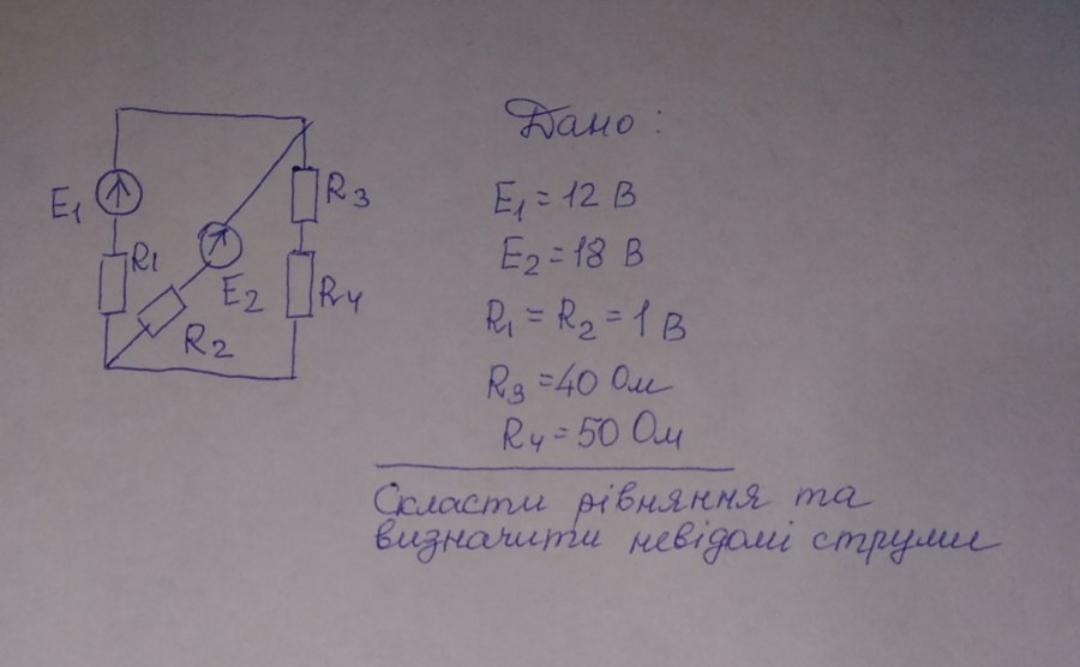 Дано:
E1
R1
R2
E2
R3
R4
E1=12 В
E2=18 В
R1=R2=1 В
R3=40 Ом
R4=50 Ом
Скласти рівняння та
визначити невідомі струми